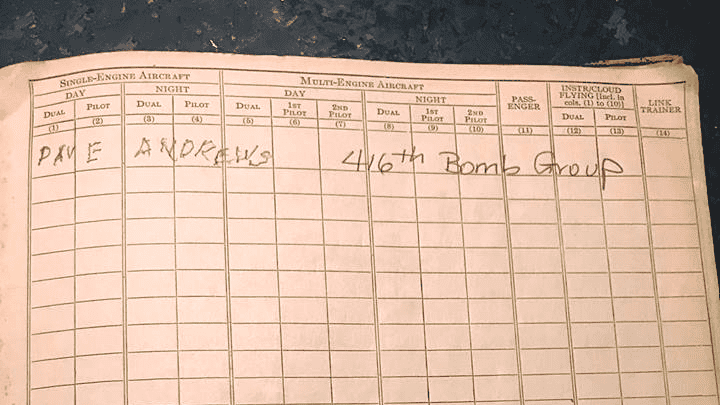 SINGLE-ENGINE AIRCRAFT MULTI-ENGINE AIRCRAFT PASS-ENGER INSTR/CLOUD FLYING [Incl. in cols. (1) to (10)] LINK TRAINER
DAY NIGHT DAY NIGHT
DUAL PILOT DUAL PILOT DUAL 1ST PILOT 2ND PILOT DUAL 1ST PILOT 2ND PILOT DUAL PILOT
(1) (2) (3) (4) (5) (6) (7) (8) (9) (10) (11) (12) (13) (14)
DAVE ANDREWS 416th Bomb Group